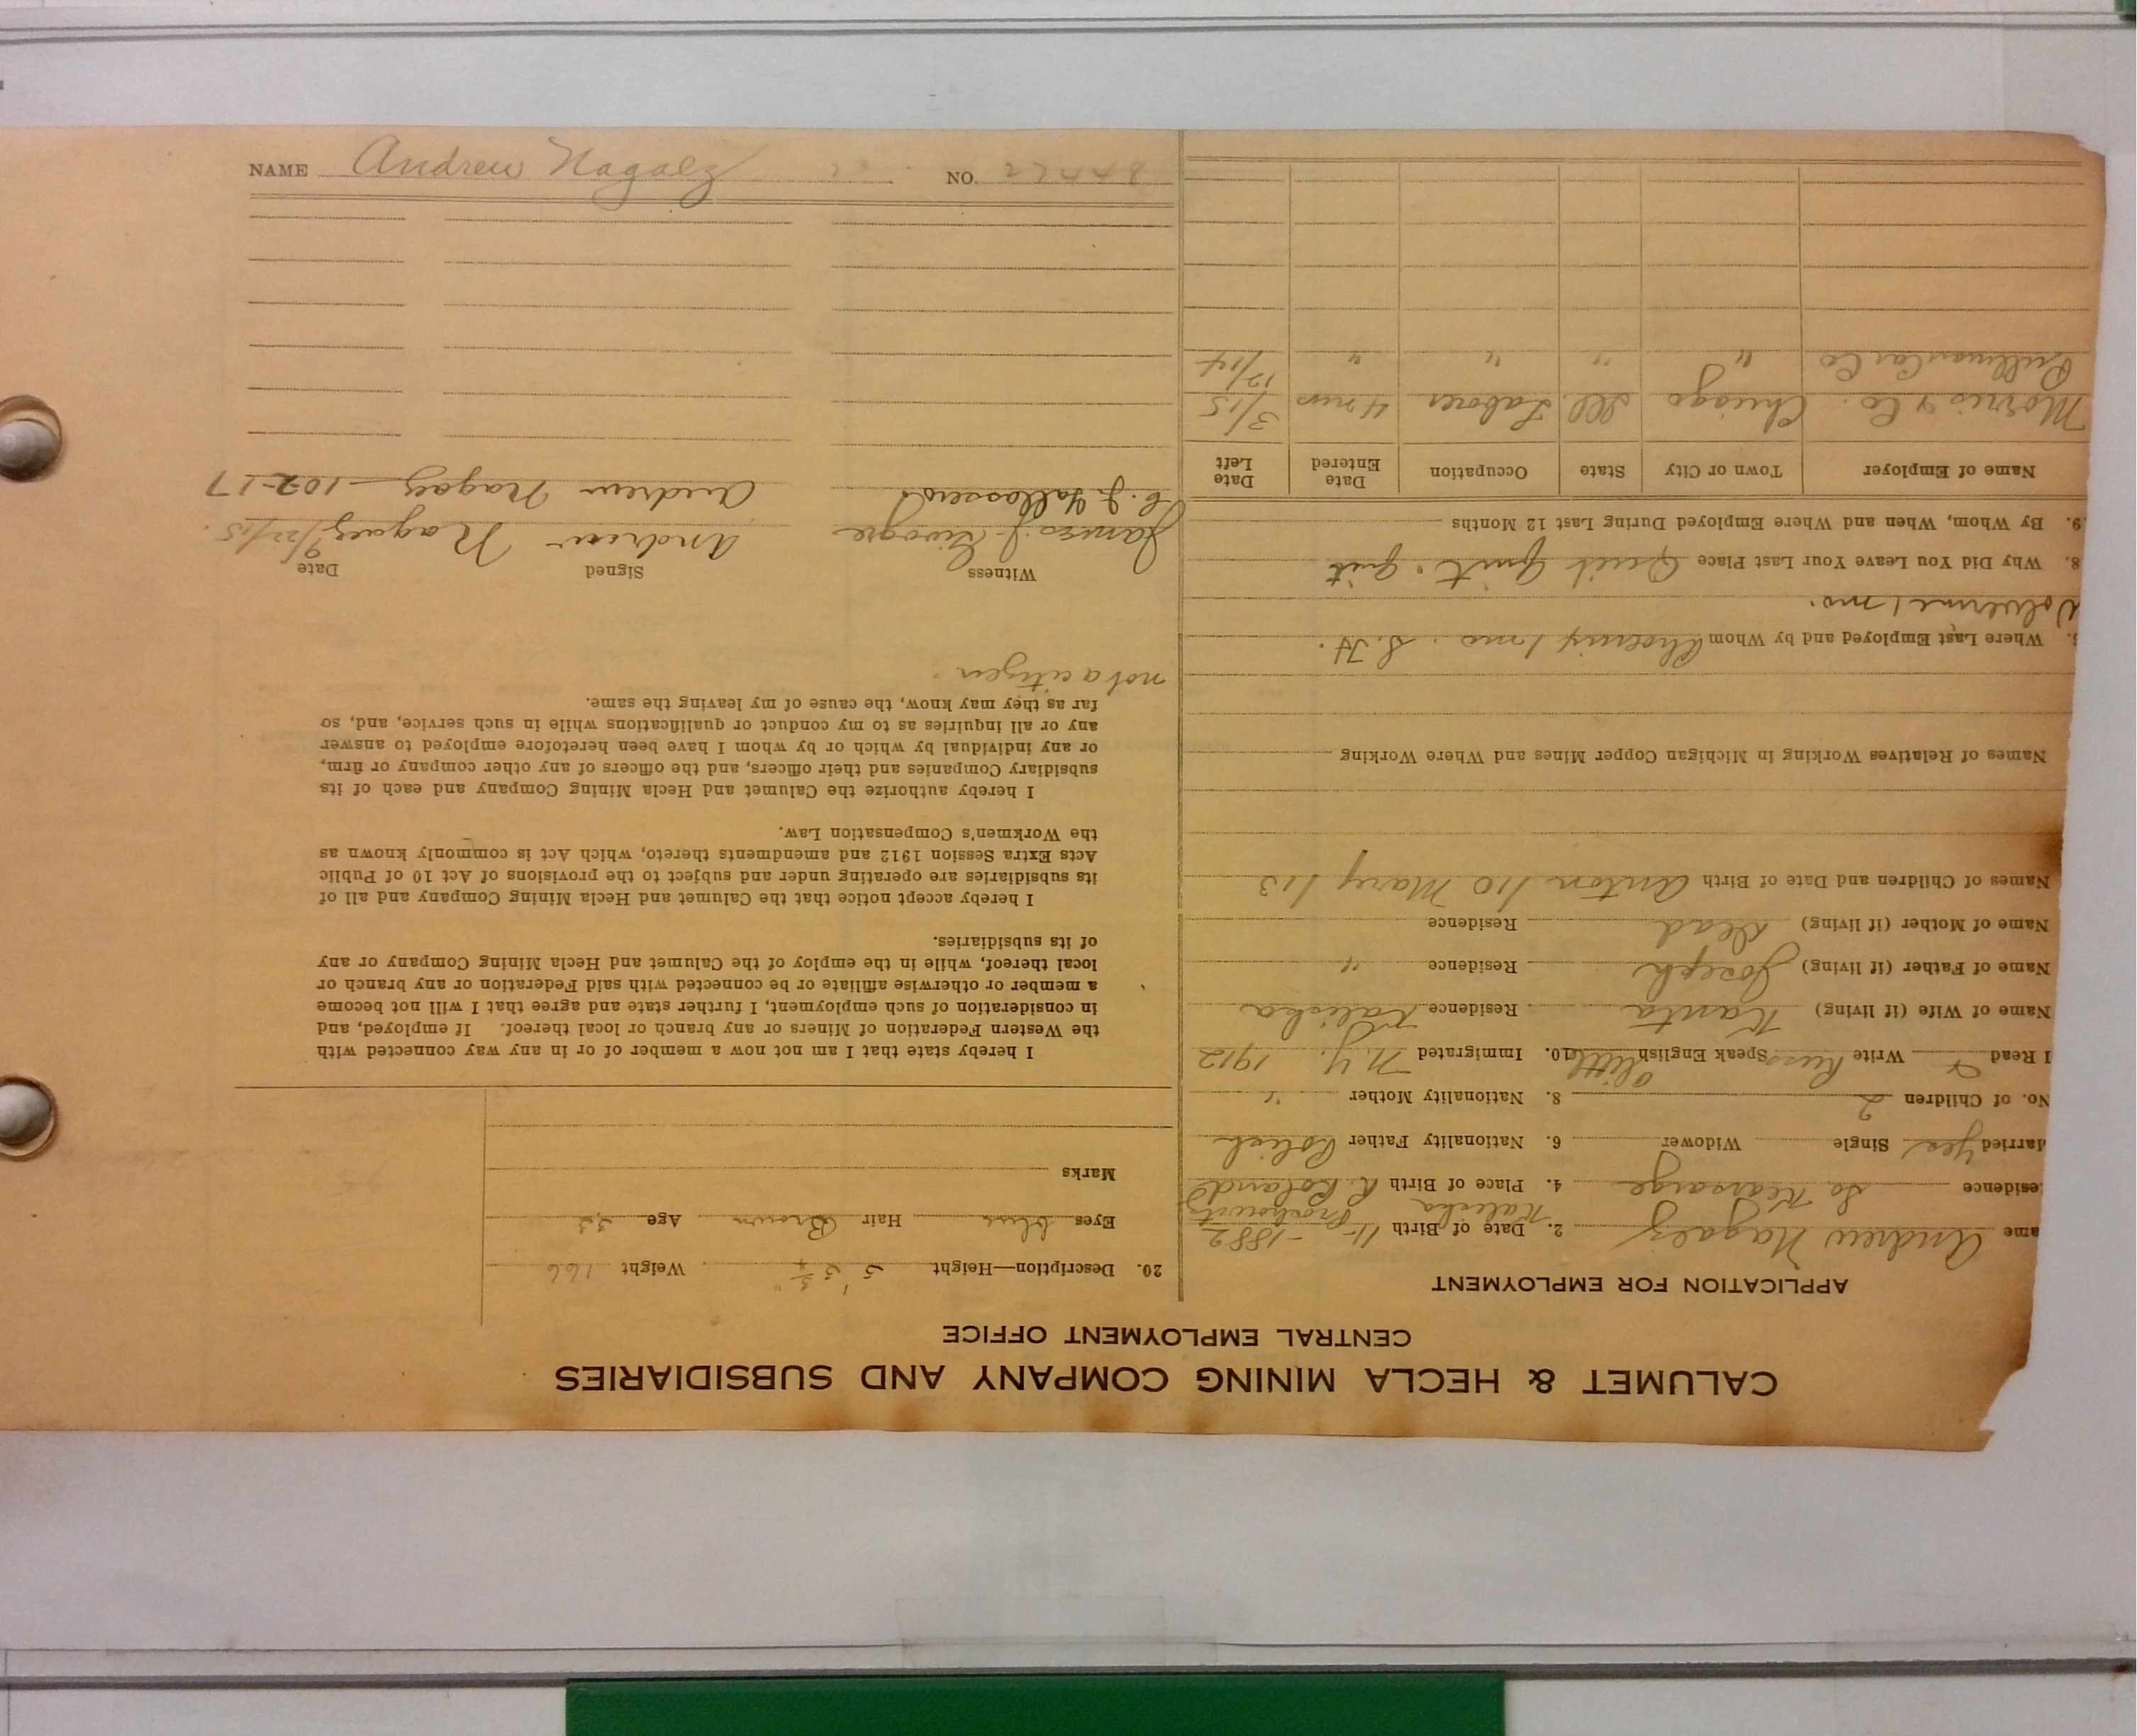 CALUMET & HECLA MINING COMPANY AND SUBSIDIARIES
CENTRAL EMPLOYMENT OFFICE
APPLICATION FOR EMPLOYMENT
ame Andrew Nagaez 2. Date of Birth 11- -1882
esidence So Kearsarge 4. Place of Birth R. Poland
Kalicka
arried Yes Single Widower 6. Nationality Father Polish
No. of Children 2 8. Nationality Mother "
I Read Write Russ Speak English little 10. Immigrated N.Y. 1912
Name of Wife (if living) Residence Kalicka
Name of Father (if living) Joseph Residence "
Name of Mother (if living) Dead Residence
Names of Children and Date of Birth Anton /10 Mary /13
Names of Relatives Working in Michigan Copper Mines and Where Working
Where Last Employed and by Whom 1 mo. S.H.
Wolverine 1 mo.
8. Why Did You Leave Your Last Place Quit Quit. quit
9. By Whom, When and Where Employed During Last 12 Months
Name of Employer Town or City State Occupation Date Entered Date Left
Morris & Co. Chicago Ill Laborer 4 mos 3/15
Pullman Car Co " " " " 12/14
20. Description—Height 5' 3 3/4" Weight 166
Eyes blue Hair Brown Age 33
Marks
I hereby state that I am not now a member of or in any way connected with
the Western Federation of Miners or any branch or local thereof. If employed, and
in consideration of such employment, I further state and agree that I will not become
a member or otherwise affiliate or be connected with said Federation or any branch or
local thereof, while in the employ of the Calumet and Hecla Mining Company or any
of its subsidiaries.
I hereby accept notice that the Calumet and Hecla Mining Company and all of
its subsidiaries are operating under and subject to the provisions of Act 10 of Public
Acts Extra Session 1912 and amendments thereto, which Act is commonly known as
the Workmen's Compensation Law.
I hereby authorize the Calumet and Hecla Mining Company and each of its
subsidiary Companies and their officers, and the officers of any other company or firm,
or any individual by which or by whom I have been heretofore employed to answer
any or all inquiries as to my conduct or qualifications while in such service, and, so
far as they may know, the cause of my leaving the same.
not a citizen.
Witness Signed Date
James J. Andrew Nagaez 9/22/15.
C. J. Andrew Nagaez 102-17
NAME Andrew Nagaez NO. 27448